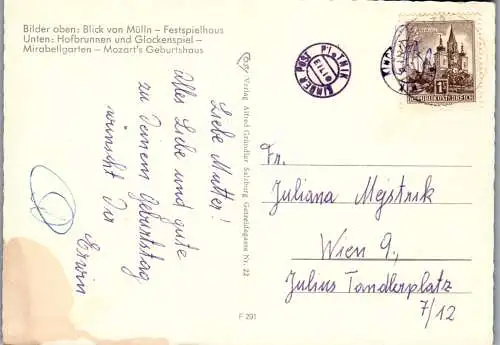 Bilder oben: Blick von Mülln – Festspielhaus
Unten: Hofbrunnen und Glockenspiel –
Mirabellgarten – Mozart's Geburtshaus
Liebe Mutter!
Alles Liebe und gute
zu Deinem Geburtstag
wünscht Dir
Erwin
Verlag Alfred Gründler Salzburg Getreidegasse Nr. 22
F 291
KINDER POST
REPUBLIK ÖSTERREICH
Fr.
Juliana Mejstnik
Wien 9.,
Julius Tandlerplatz
7/12